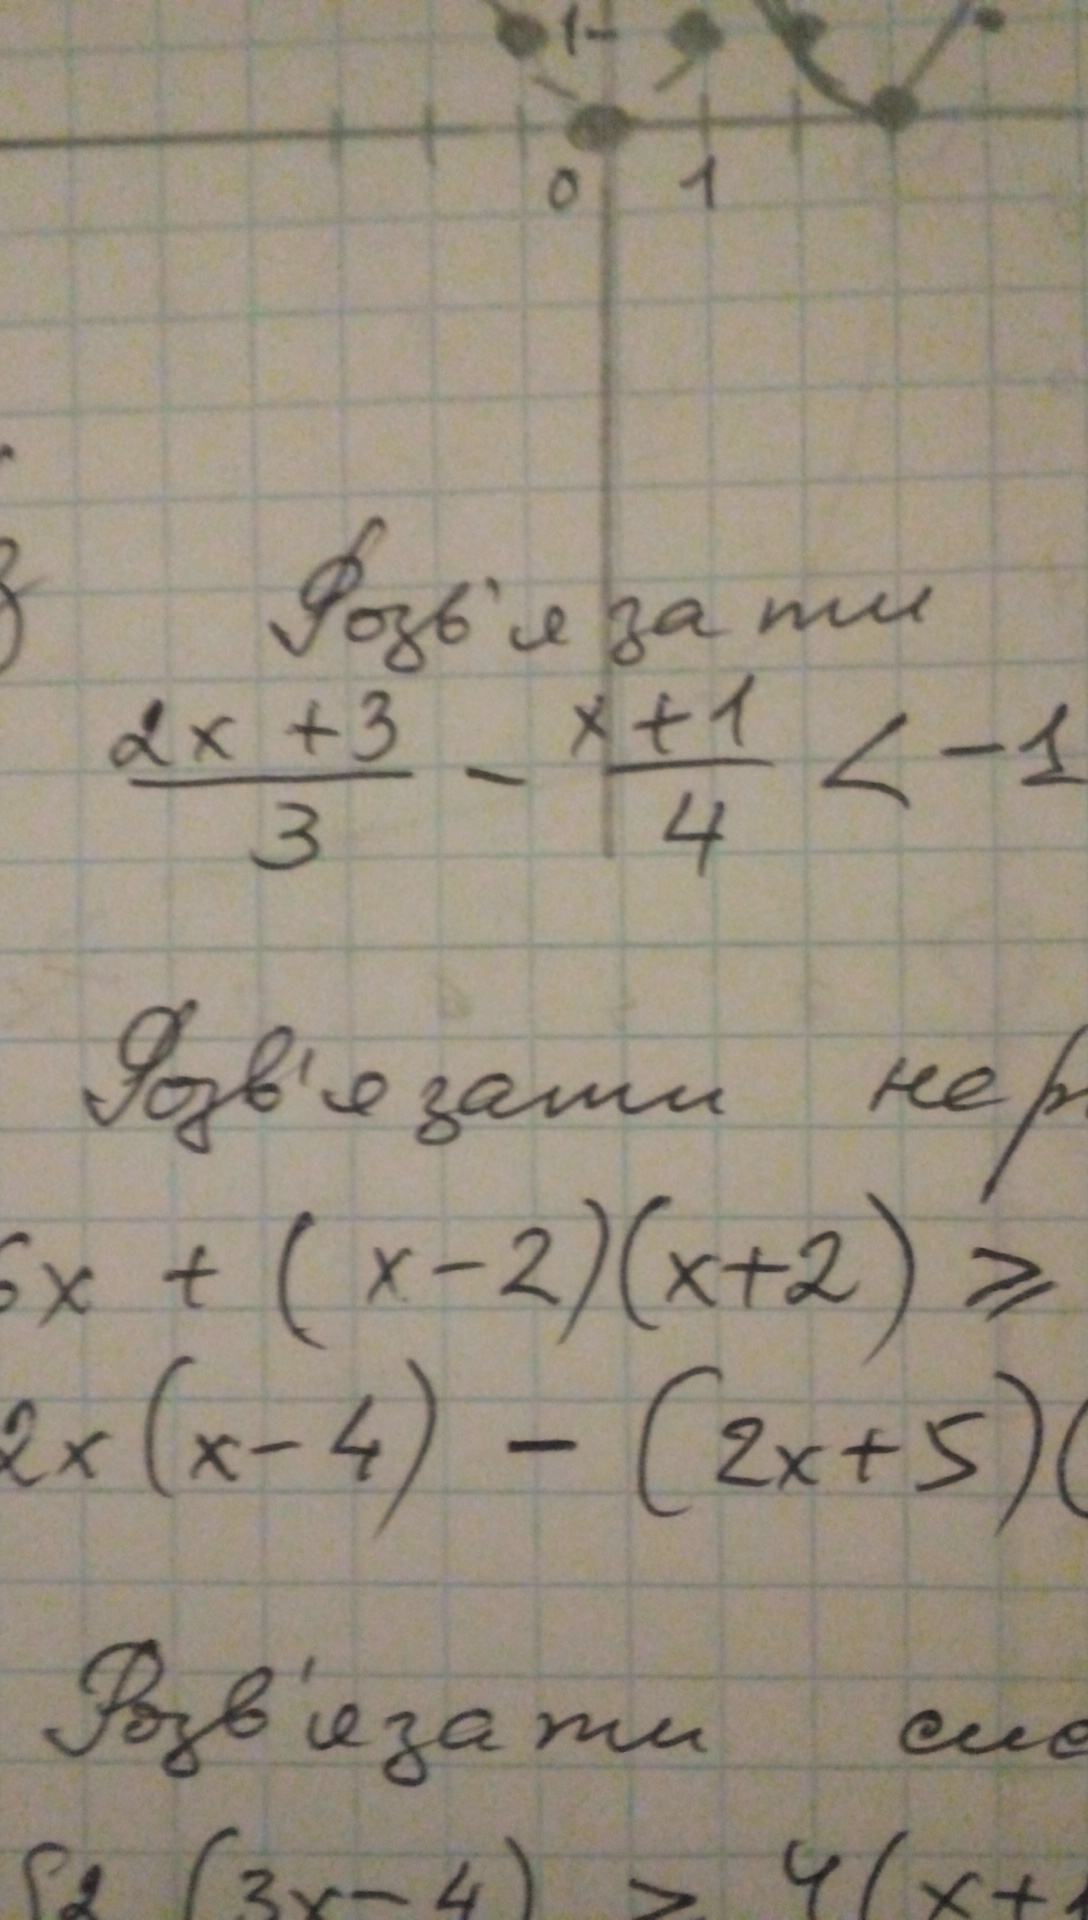 1
0 1
Розв'язати
2x + 3 / 3 - x + 1 / 4 < -1
Розв'язати
x + (x - 2)(x + 2) ≥
2x(x - 4) - (2x + 5)(
Розв'язати
2(3x - 4) > 4(x +